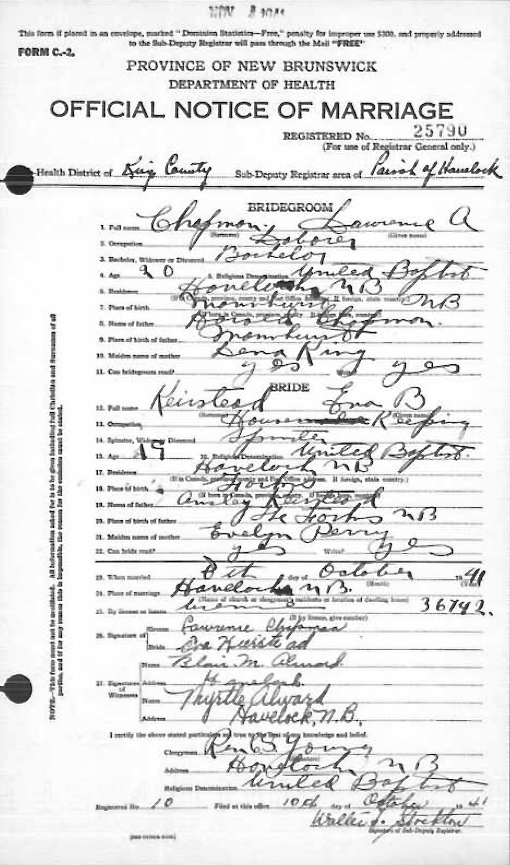 NOV 1941
This form if placed in an envelope, marked "Dominion Statistics—Free," penalty for improper use $300, and properly addressed
to the Sub-Deputy Registrar will pass through the Mail "FREE"
FORM C.-2.
PROVINCE OF NEW BRUNSWICK
DEPARTMENT OF HEALTH
OFFICIAL NOTICE OF MARRIAGE
REGISTERED No. 25790
(For use of Registrar General only.)
Health District of King County Sub-Deputy Registrar area of Parish of Havelock
BRIDEGROOM
1. Full name Chapman Lawrence A
(Surname) (Given name)
2. Occupation Laborer
3. Bachelor, Widower or Divorced Bachelor
4. Age 20 5. Religious Denomination United Baptist
6. Residence Havelock NB
7. Place of birth NB
8. Name of father Chapman
9. Place of birth of father
10. Maiden name of mother Lena King
11. Can bridegroom read? yes Write? yes
BRIDE
12. Full name Keirstead Eva B
(Surname) (Given name)
13. Occupation House Keeping
14. Spinster, Widow or Divorced Spinster
15. Age 19 16. Religious Denomination United Baptist
17. Residence Havelock NB
(If in Canada, province, county and Post Office Address. If foreign, state country.)
18. Place of birth
19. Name of father Keirstead
20. Place of birth of father The Forks NB
21. Maiden name of mother Evelyn Perry
22. Can bride read? yes Write? yes
23. When married 8th day of October 1941
(Month) (Year)
24. Place of marriage Havelock N.B.
(Name of church or clergyman's residence or location of dwelling house)
25. By license or banns license 36742.
(If by license, give number)
26. Signature of Groom Lawrence Chapman
Bride Eva Keirstead
27. Signatures of Witnesses
Name Blair M. Alward
Address Havelock
Name Myrtle Alward
Address Havelock, N.B.
I certify the above stated particulars are true to the best of my knowledge and belief.
Clergyman Young
(Signature)
Address Havelock NB
Religious Denomination United Baptist
Registered No. 10 Filed at this office 10th day of October 1941
Signature of Sub-Deputy Registrar.
NOTE.—This form must not be mutilated. All information asked for is to be given including full Christian and Surnames of all
parties, and if for any reason this is impossible, the reason for the omission must be stated.